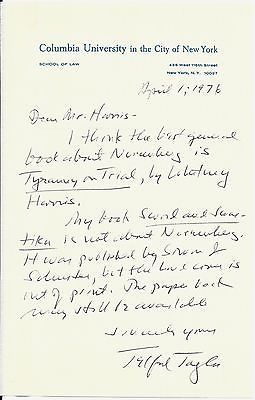 Columbia University in the City of New York
SCHOOL OF LAW
435 West 116th Street
New York, N.Y. 10027
April 1, 1976
Dear Mr. Harris-
I think the best general
book about Nuremberg is
Tyranny on Trial, by Whitney
Harris.
My book Sword and Swas-
tika is not about Nuremberg.
It was published by Simon &
Schuster, but the hard cover is
out of print. The paper back
may still be available
Sincerely yours
Telford Taylor